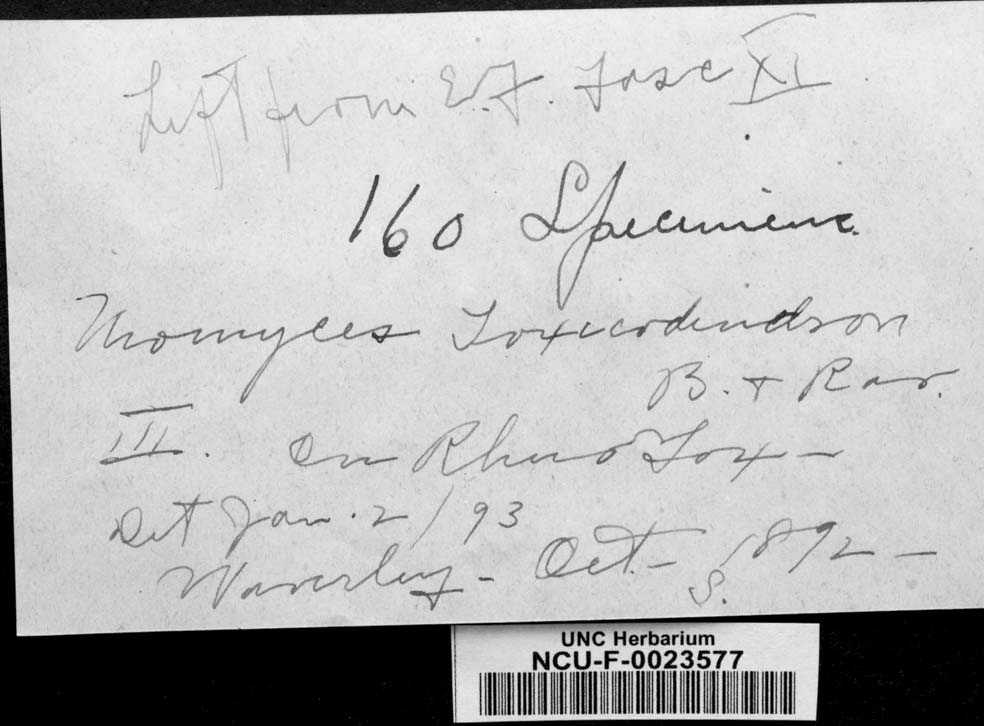 Left from E.F. Fasc XI
160 Specimens.
Uromyces Toxicodendron
B. + Rav.
III. On Rhus Tox -
Det Jan. 2/93
Waverley - Oct - 1892 -
S.
UNC Herbarium
NCU-F-0023577